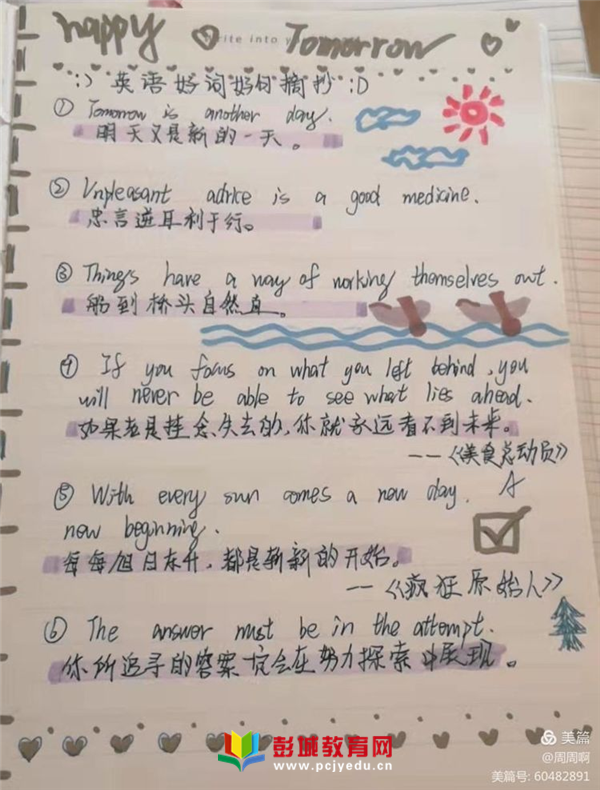 happy rite into y Tomorrow
:) 英语好词好句摘抄 :D
① Tomorrow is another day.
明天又是新的一天。
② Unpleasant advice is a good medicine.
忠言逆耳利于行。
③ Things have a way of working themselves out.
船到桥头自然直。
④ If you focus on what you left behind, you
will never be able to see what lies ahead.
如果老是挂念失去的,你就永远看不到未来。
——《美食总动员》
⑤ With every sun comes a new day. A
new beginning.
每每旭日东升,都是崭新的开始。
——《疯狂原始人》
⑥ The answer must be in the attempt.
你所追寻的答案一定会在努力探索中展现。
彭城教育网
www.pcjyedu.cn
美篇
@周周啊
美篇号: 60482891